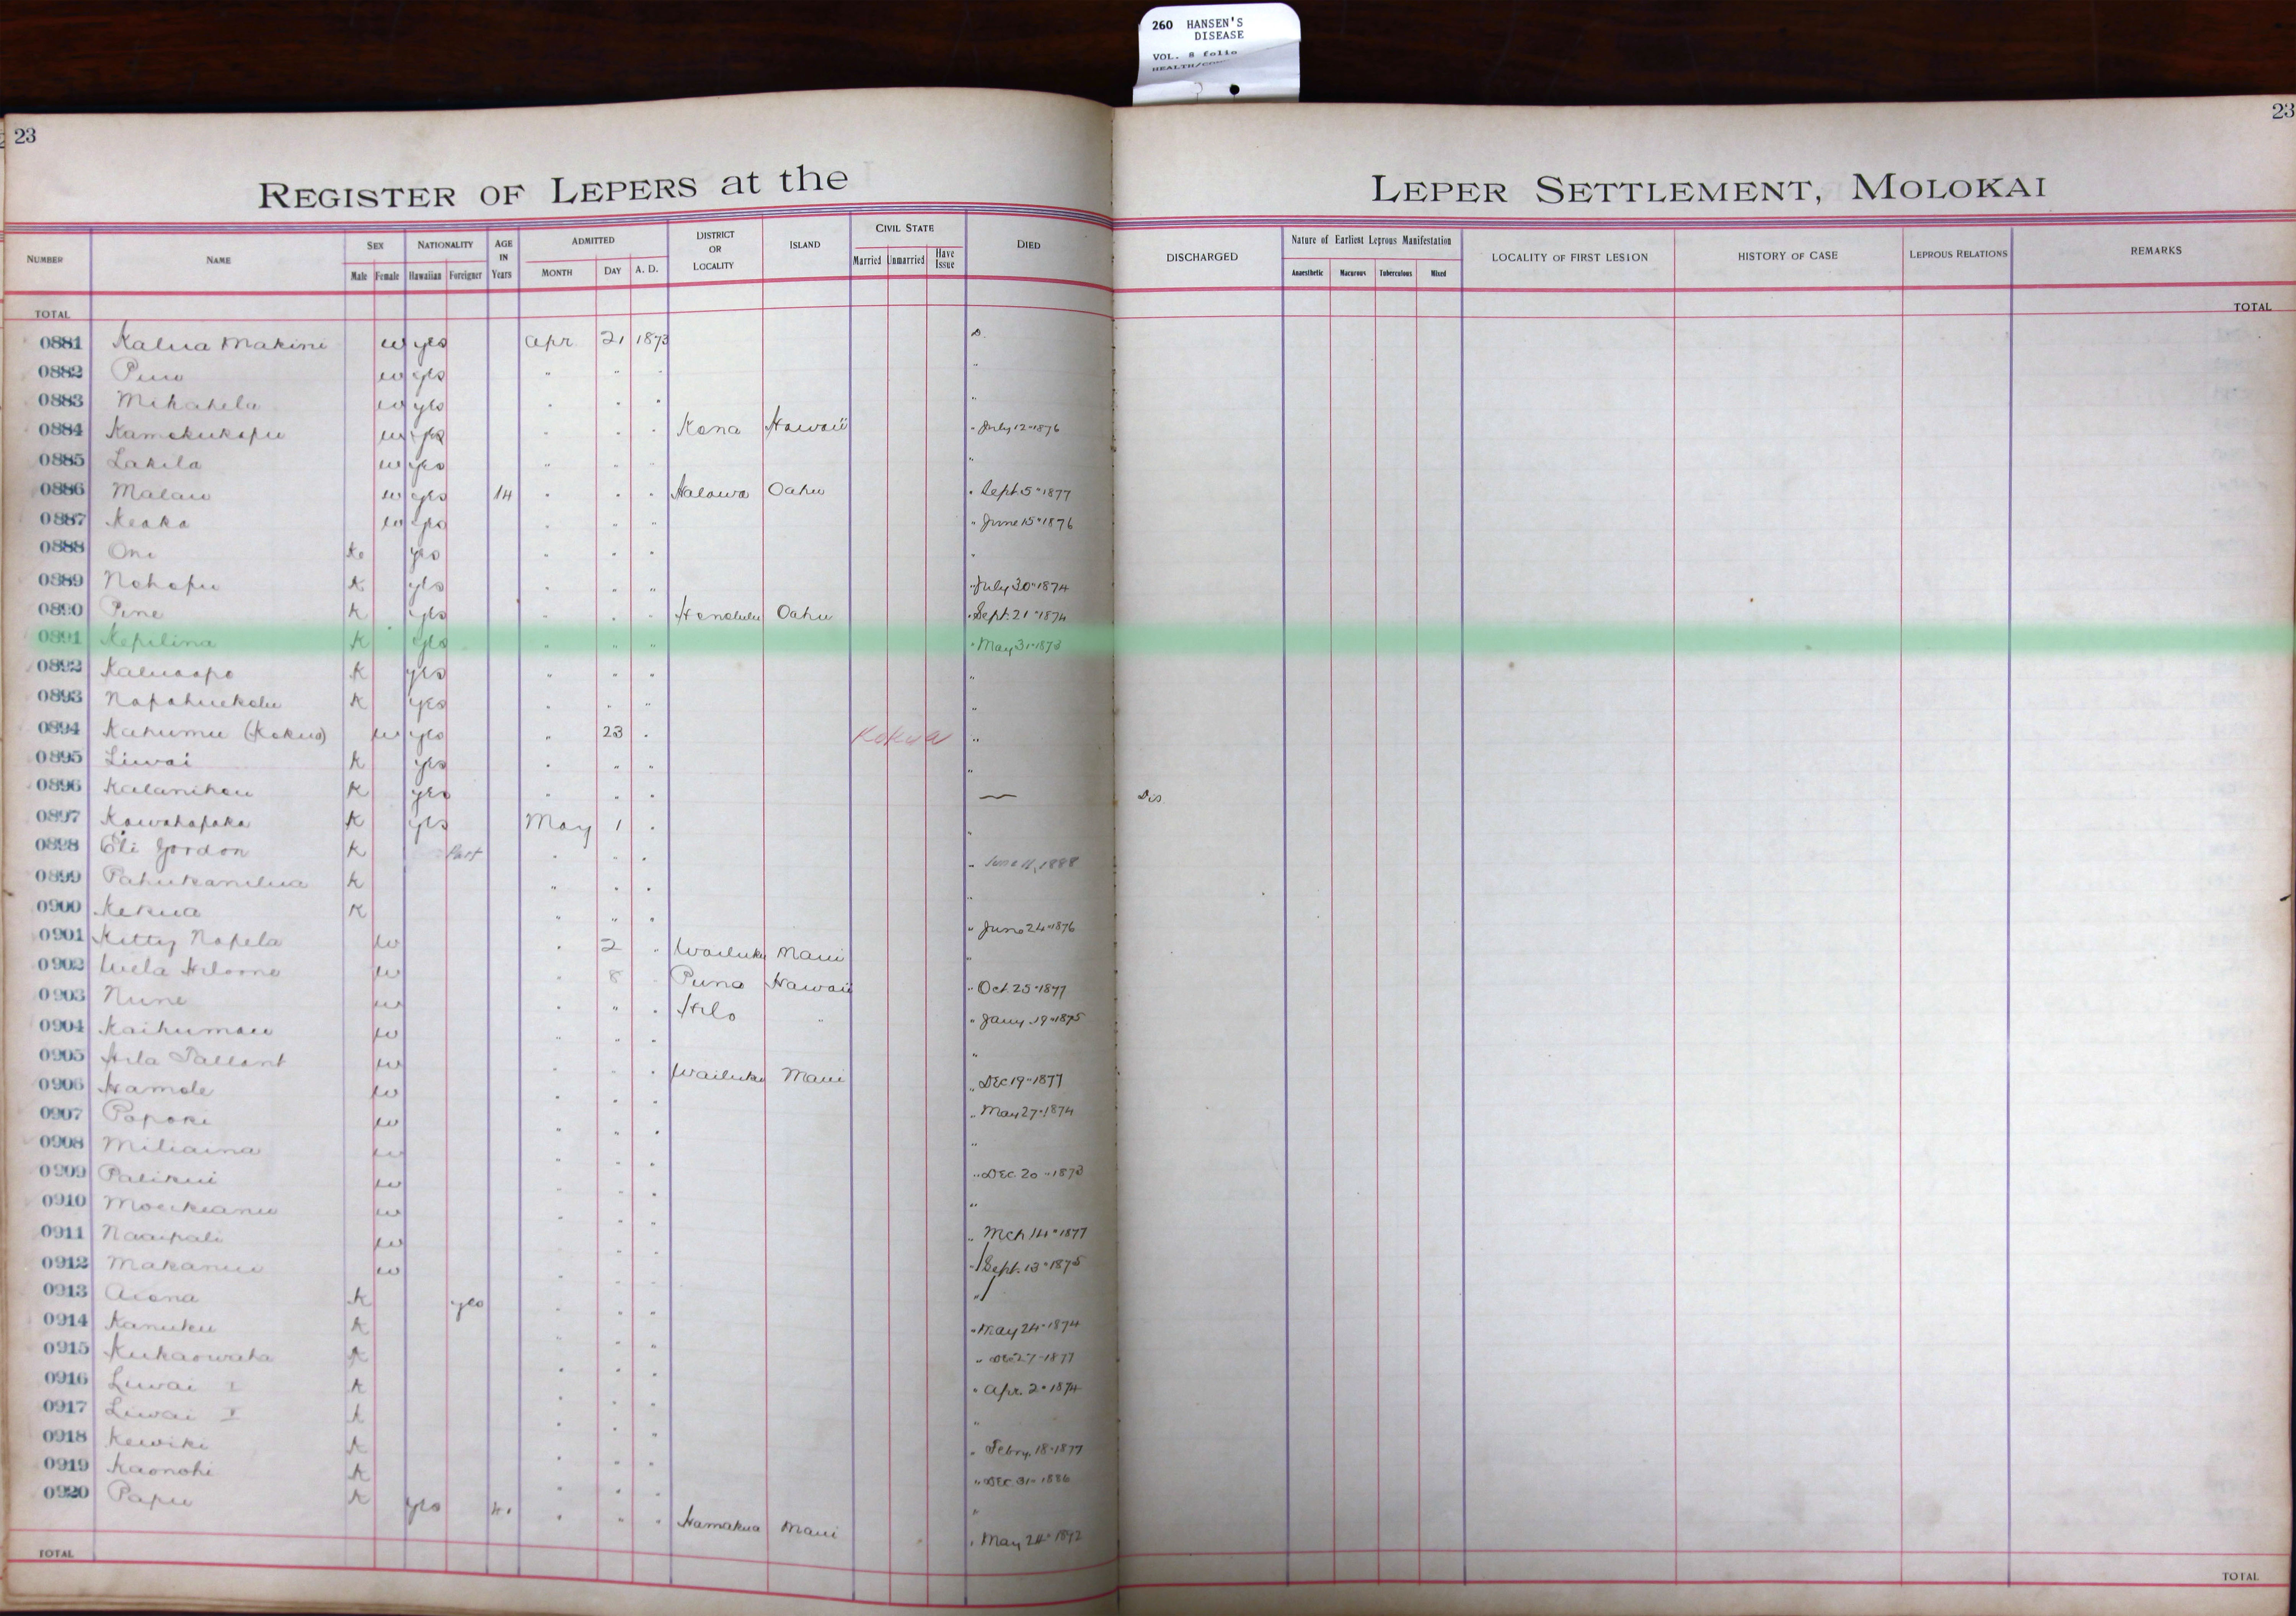 260 HANSEN'S
DISEASE
VOL. 8 folio
23
23
REGISTER OF LEPERS at the LEPER SETTLEMENT, MOLOKAI
NUMBER NAME SEX NATIONALITY AGE IN Years ADMITTED DISTRICT OR LOCALITY ISLAND CIVIL STATE DIED DISCHARGED Nature of Earliest Leprous Manifestation LOCALITY OF FIRST LESION HISTORY OF CASE LEPROUS RELATIONS REMARKS
Male Female Hawaiian Foreigner MONTH DAY A. D. Married Unmarried Have Issue Anaesthetic Macurous Tuberculous Mixed
TOTAL TOTAL
0881 Kalua Makini w yes Apr 21 1873 D.
0882 w yes " " " "
0883 Mikahela w yes " " " "
0884 Kamokukapu w yes " " " Kona Hawaii " July 12 " 1876
0885 Lakila w yes " " " "
0886 Malau w yes 14 " " " Halawa Oahu " Sept. 5 " 1877
0887 Keaka w yes " " " " June 15 " 1876
0888 Oni K yes " " " "
0889 Nohopu K yes " " " " July 30 " 1874
0890 Pine K yes " " " Honolulu Oahu " Sept. 21 " 1874
0891 Kepilina K yes " " " " May 31 " 1873
0892 Kaluaopo K yes " " " "
0893 Napahuekolu K yes " " " "
0894 Kahumu (Kokua) w yes " 23 " Kokua "
0895 Liwai K yes " " " "
0896 Kalanihou K yes " " " — Dis
0897 Kawahapaka K yes May 1 " "
0898 Eli Gordon K Part " " " " June 11, 1888
0899 Pahukanilua K " " " "
0900 Kekua K " " " " June 24 " 1876
0901 Kitty Napela w " 2 " Wailuku Maui "
0902 w " 8 " Puna Hawaii " Oct. 25 " 1877
0903 Nune w " " " Hilo " " Jany. 19 " 1875
0904 Kaihumau w " " " "
0905 Hila w " " " Wailuku Maui " Dec 19 " 1877
0906 Hamole w " " " " May 27 " 1874
0907 Papoki w " " " "
0908 Miliaina w " " " " Dec. 20 " 1873
0909 Palikui w " " " "
0910 w " " " " Mch 14 " 1877
0911 Naaipali w " " " " Sept. 13 " 1875
0912 Makanui w " " " "
0913 Aiona K yes " " " " May 24 " 1874
0914 Kanuku K " " " " Dec 27 " 1877
0915 Kukaowaha K " " " " Apr. 2 " 1874
0916 Liwai I K " " " "
0917 Liwai K " " " " Febry. 18 " 1877
0918 Kewiki K " " " " Dec. 31 " 1886
0919 Kaonohi K " " " "
0920 Papu K yes " " " Hamakua Maui " May 24 " 1892
TOTAL TOTAL